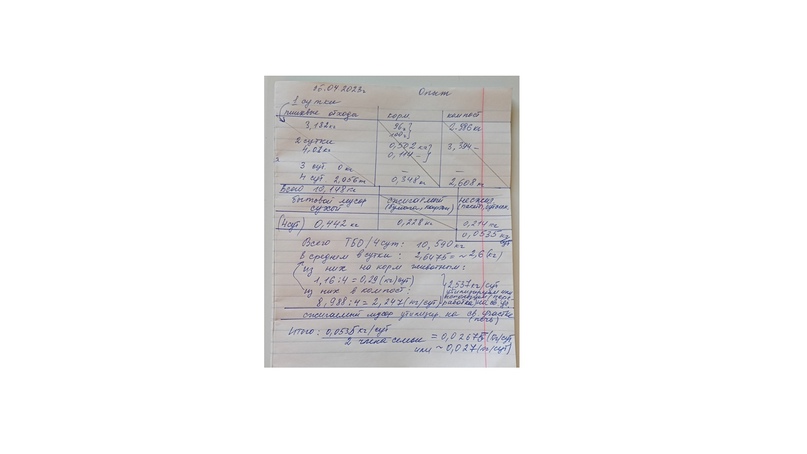 16.04.2023г Опыт
1 сутки
пищевые отходы корм компост
3,182кг 96г} 2.986кг
100г}
2 сутки
4,02кг 0,502кг} 3,394 –
0,114 –}
3 сут. 0кг – –
4 сут. 2,956кг 0,348кг 2,608кг
Всего 10,148кг
бытовой мусор сжигаемый
сухой (бумага, (пакет,
(4сут) 0,442кг 0,228кг 0,214кг
0,0535кг/сут
Всего ТБО/4сут: 10,590кг
В среднем в сутки: 2,6475=~2,6(кг)
из них на корм животным:
1,16:4=0,29(кг/сут) 2,537кг/сут
из них в компост:
8,988:4=2,247(кг/сут)
сжигаемый мусор утилизир. на св участке
(печь)
Итого: 0,0535кг/сут = 0,02675(кг/сут)
2 члена семьи или ~0,027(кг/сут)